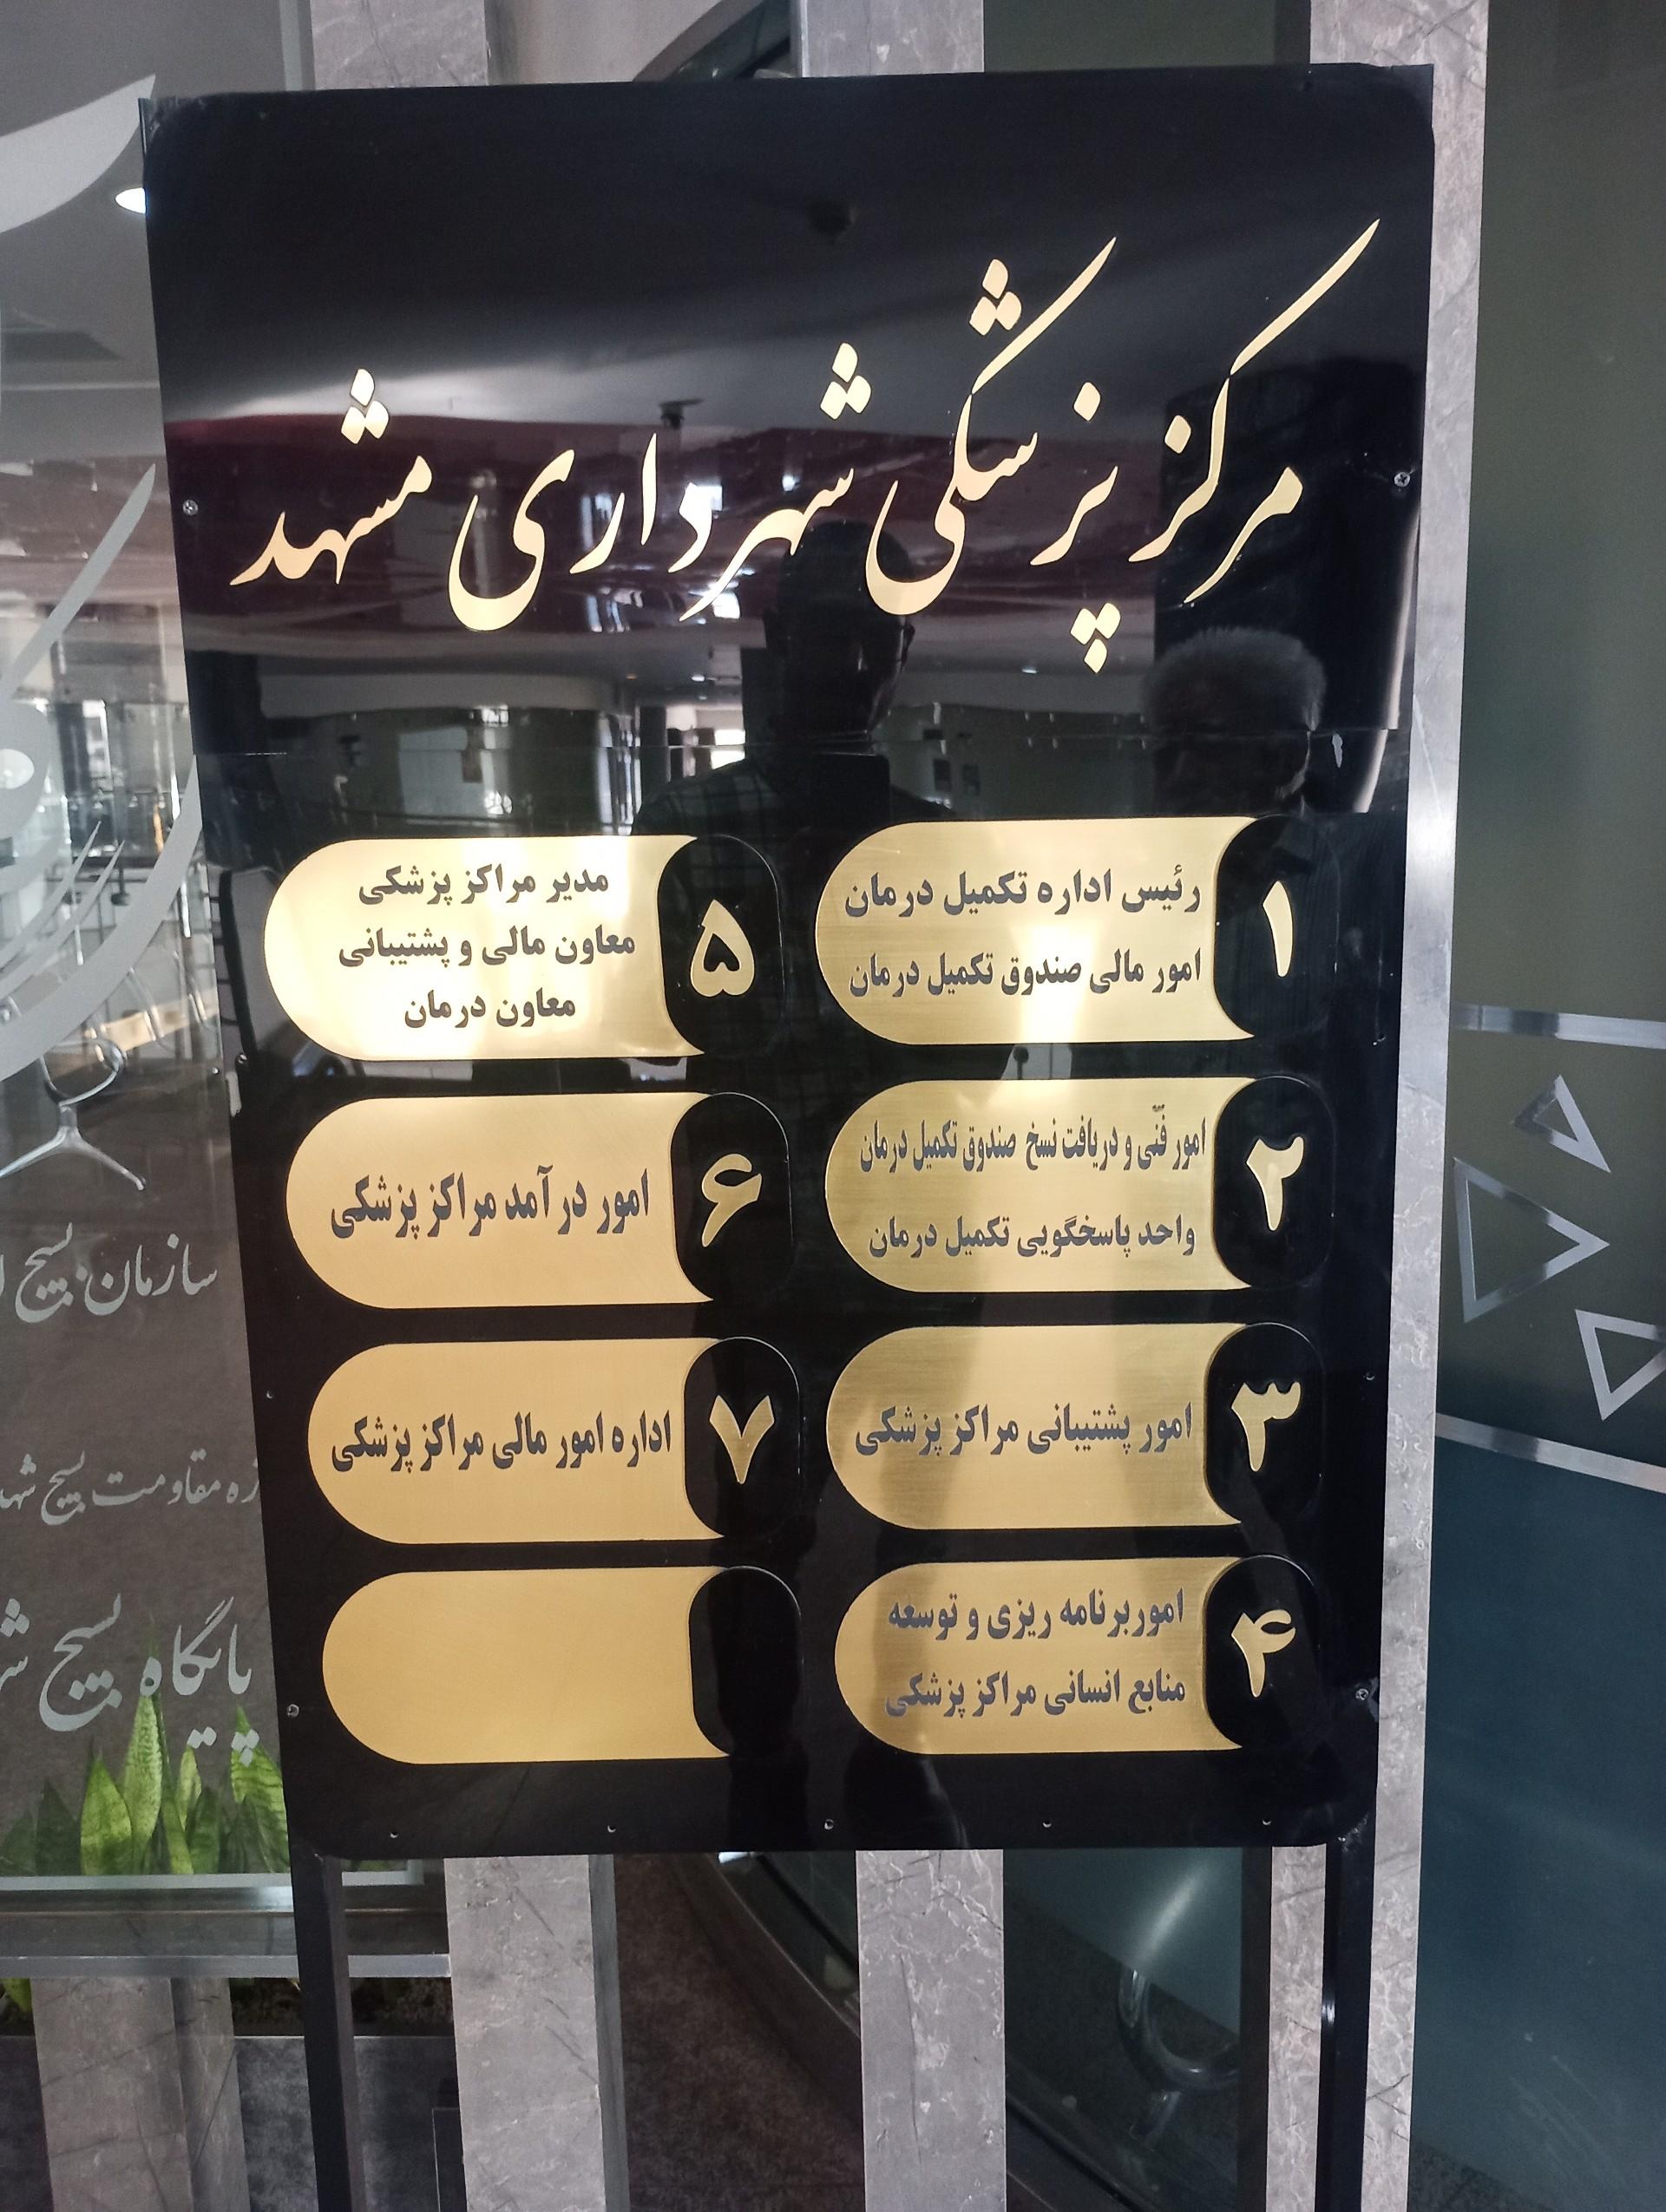 مرکز پزشکی شهرداری مشهد
۱
رئیس اداره تکمیل درمان
امور مالی صندوق تکمیل درمان
۲
امور فنّی و دریافت نسخ صندوق تکمیل درمان
واحد پاسخگویی تکمیل درمان
۳
امور پشتیبانی مراکز پزشکی
۴
اموربرنامه ریزی و توسعه
منابع انسانی مراکز پزشکی
۵
مدیر مراکز پزشکی
معاون مالی و پشتیبانی
معاون درمان
۶
امور درآمد مراکز پزشکی
۷
اداره امور مالی مراکز پزشکی
سازمان بسیج
مقاومت بسیج
پایگاه بسیج